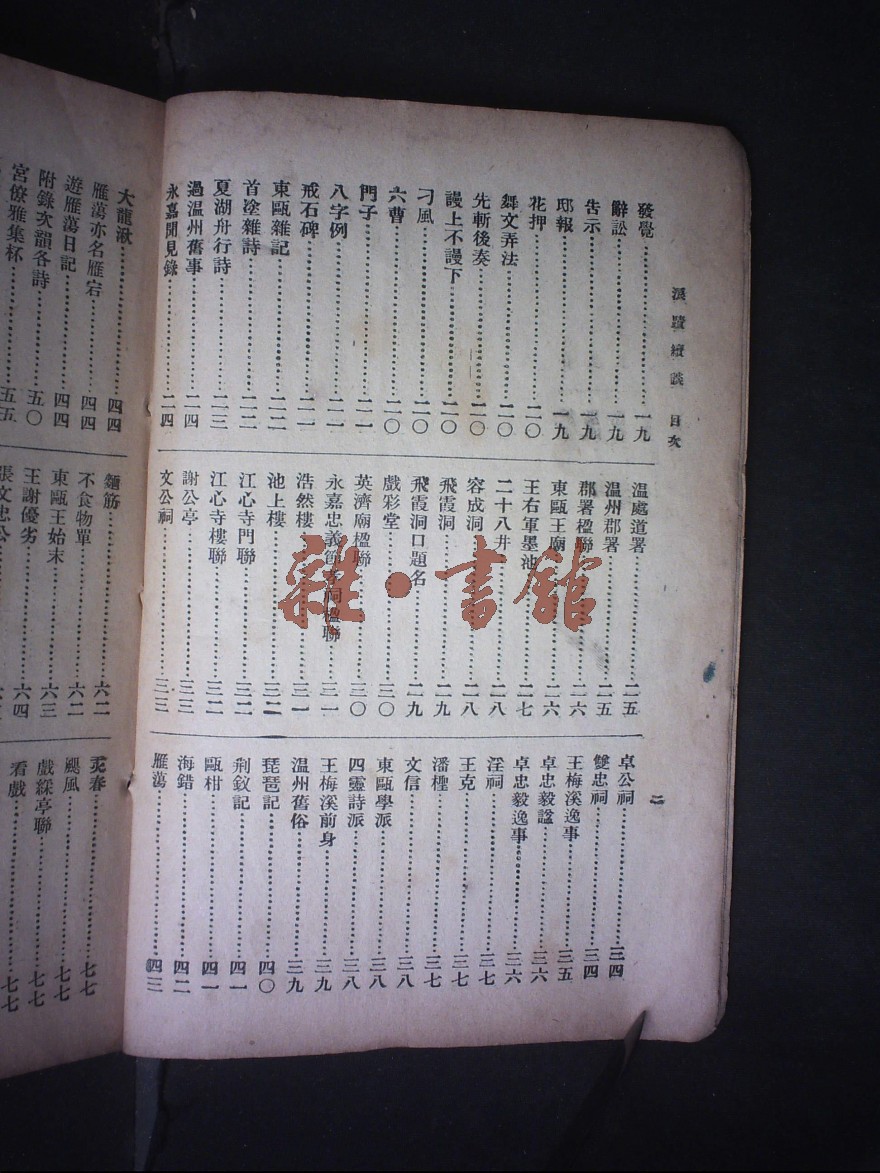 浪蹟續談 目次
二
發覺 一九
辭訟 一九
告示 一九
邸報 一九
花押 二〇
舞文弄法 二〇
先斬後奏 二〇
謾上不謾下 二〇
刁風 二〇
六曹 二〇
門子 二一
八字例 二一
戒石碑 二一
東甌雜記 二二
首塗雜詩 二二
夏湖舟行詩 二三
過温州舊事 二四
永嘉聞見錄 二四
温處道署 二五
温州郡署 二五
郡署楹聯 二六
東甌王廟 二六
王右軍墨池 二七
二十八井 二八
容成洞 二八
飛霞洞 二九
飛霞洞口題名 二九
戲彩堂 三〇
英濟廟楹聯 三〇
永嘉忠義節孝祠楹聯 三一
浩然樓 三一
池上樓 三二
江心寺門聯 三二
江心寺樓聯 三二
謝公亭 三三
文公祠 三三
卓公祠 三四
雙忠祠 三四
王梅溪逸事 三五
卓忠毅諡 三六
卓忠毅逸事 三六
淫祠 三七
王克 三七
潘檉 三七
文信 三八
東甌學派 三八
四靈詩派 三八
王梅溪前身 三九
温州舊俗 三九
琵琶記 四〇
荆釵記 四一
甌柑 四一
海錯 四二
雁蕩 四三
大龍湫 四四
雁蕩亦名雁宕 四四
遊雁蕩日記 四四
附錄次韻各詩 五〇
宮僚雅集杯 五五
麵筋 六二
不食物單 六二
東甌王始末 六三
王謝優劣 六四
張文忠公
燹春 七七
颶風 七七
戲綵亭聯 七七
看戲 七七
雜·書館